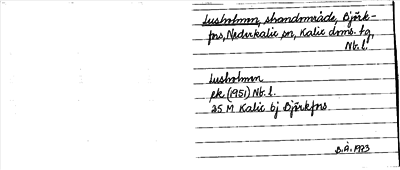 Lusholmen, strandområde, Björk-
fors, Nederkalix sn, Kalix dms. tg,
Nb. l.
Lusholmen
ek (1951) Nb. l.
25 M Kalix bj Björkfors
B.Å. 1973